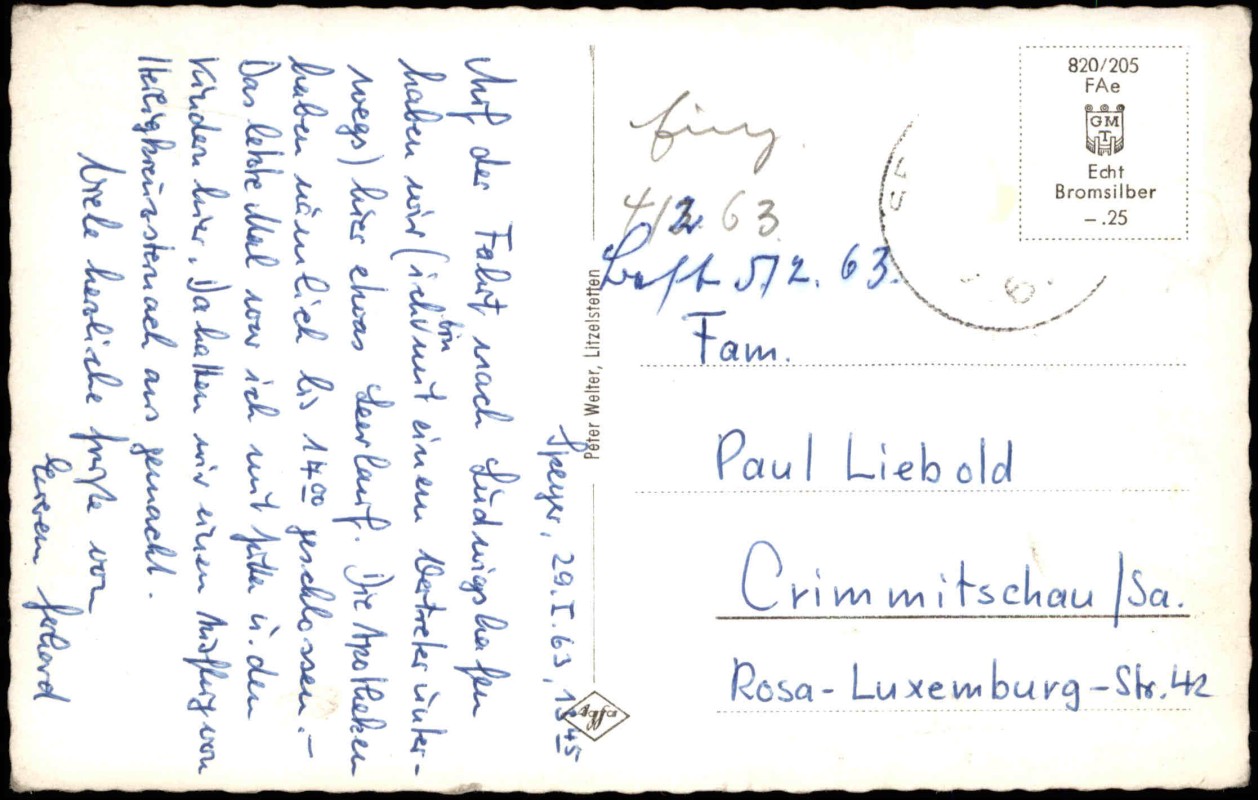 Speyer, 29.I.63, 13 45
Auf der Fahrt nach Ludwigshafen
haben wir (ich bin mit einem Vertreter unter-
wegs) hier etwas Leerlauf. Die Apotheken
haben nämlich bis 14 00 geschlossen.–
Das letzte Mal war ich mit Jutta u. den
Kindern hier. Da hatten wir einen Ausflug von
Heiligkreuzsteinach aus gemacht.
Viele herzliche Grüße von
Eurem Gerhard
Peter Welter, Litzelstetten
Agfa
820/205
FAe
GMT
Echt
Bromsilber
–.25
4/2. 63
5/2. 63.
Fam.
Paul Liebold
Crimmitschau/Sa.
Rosa-Luxemburg-Str. 42